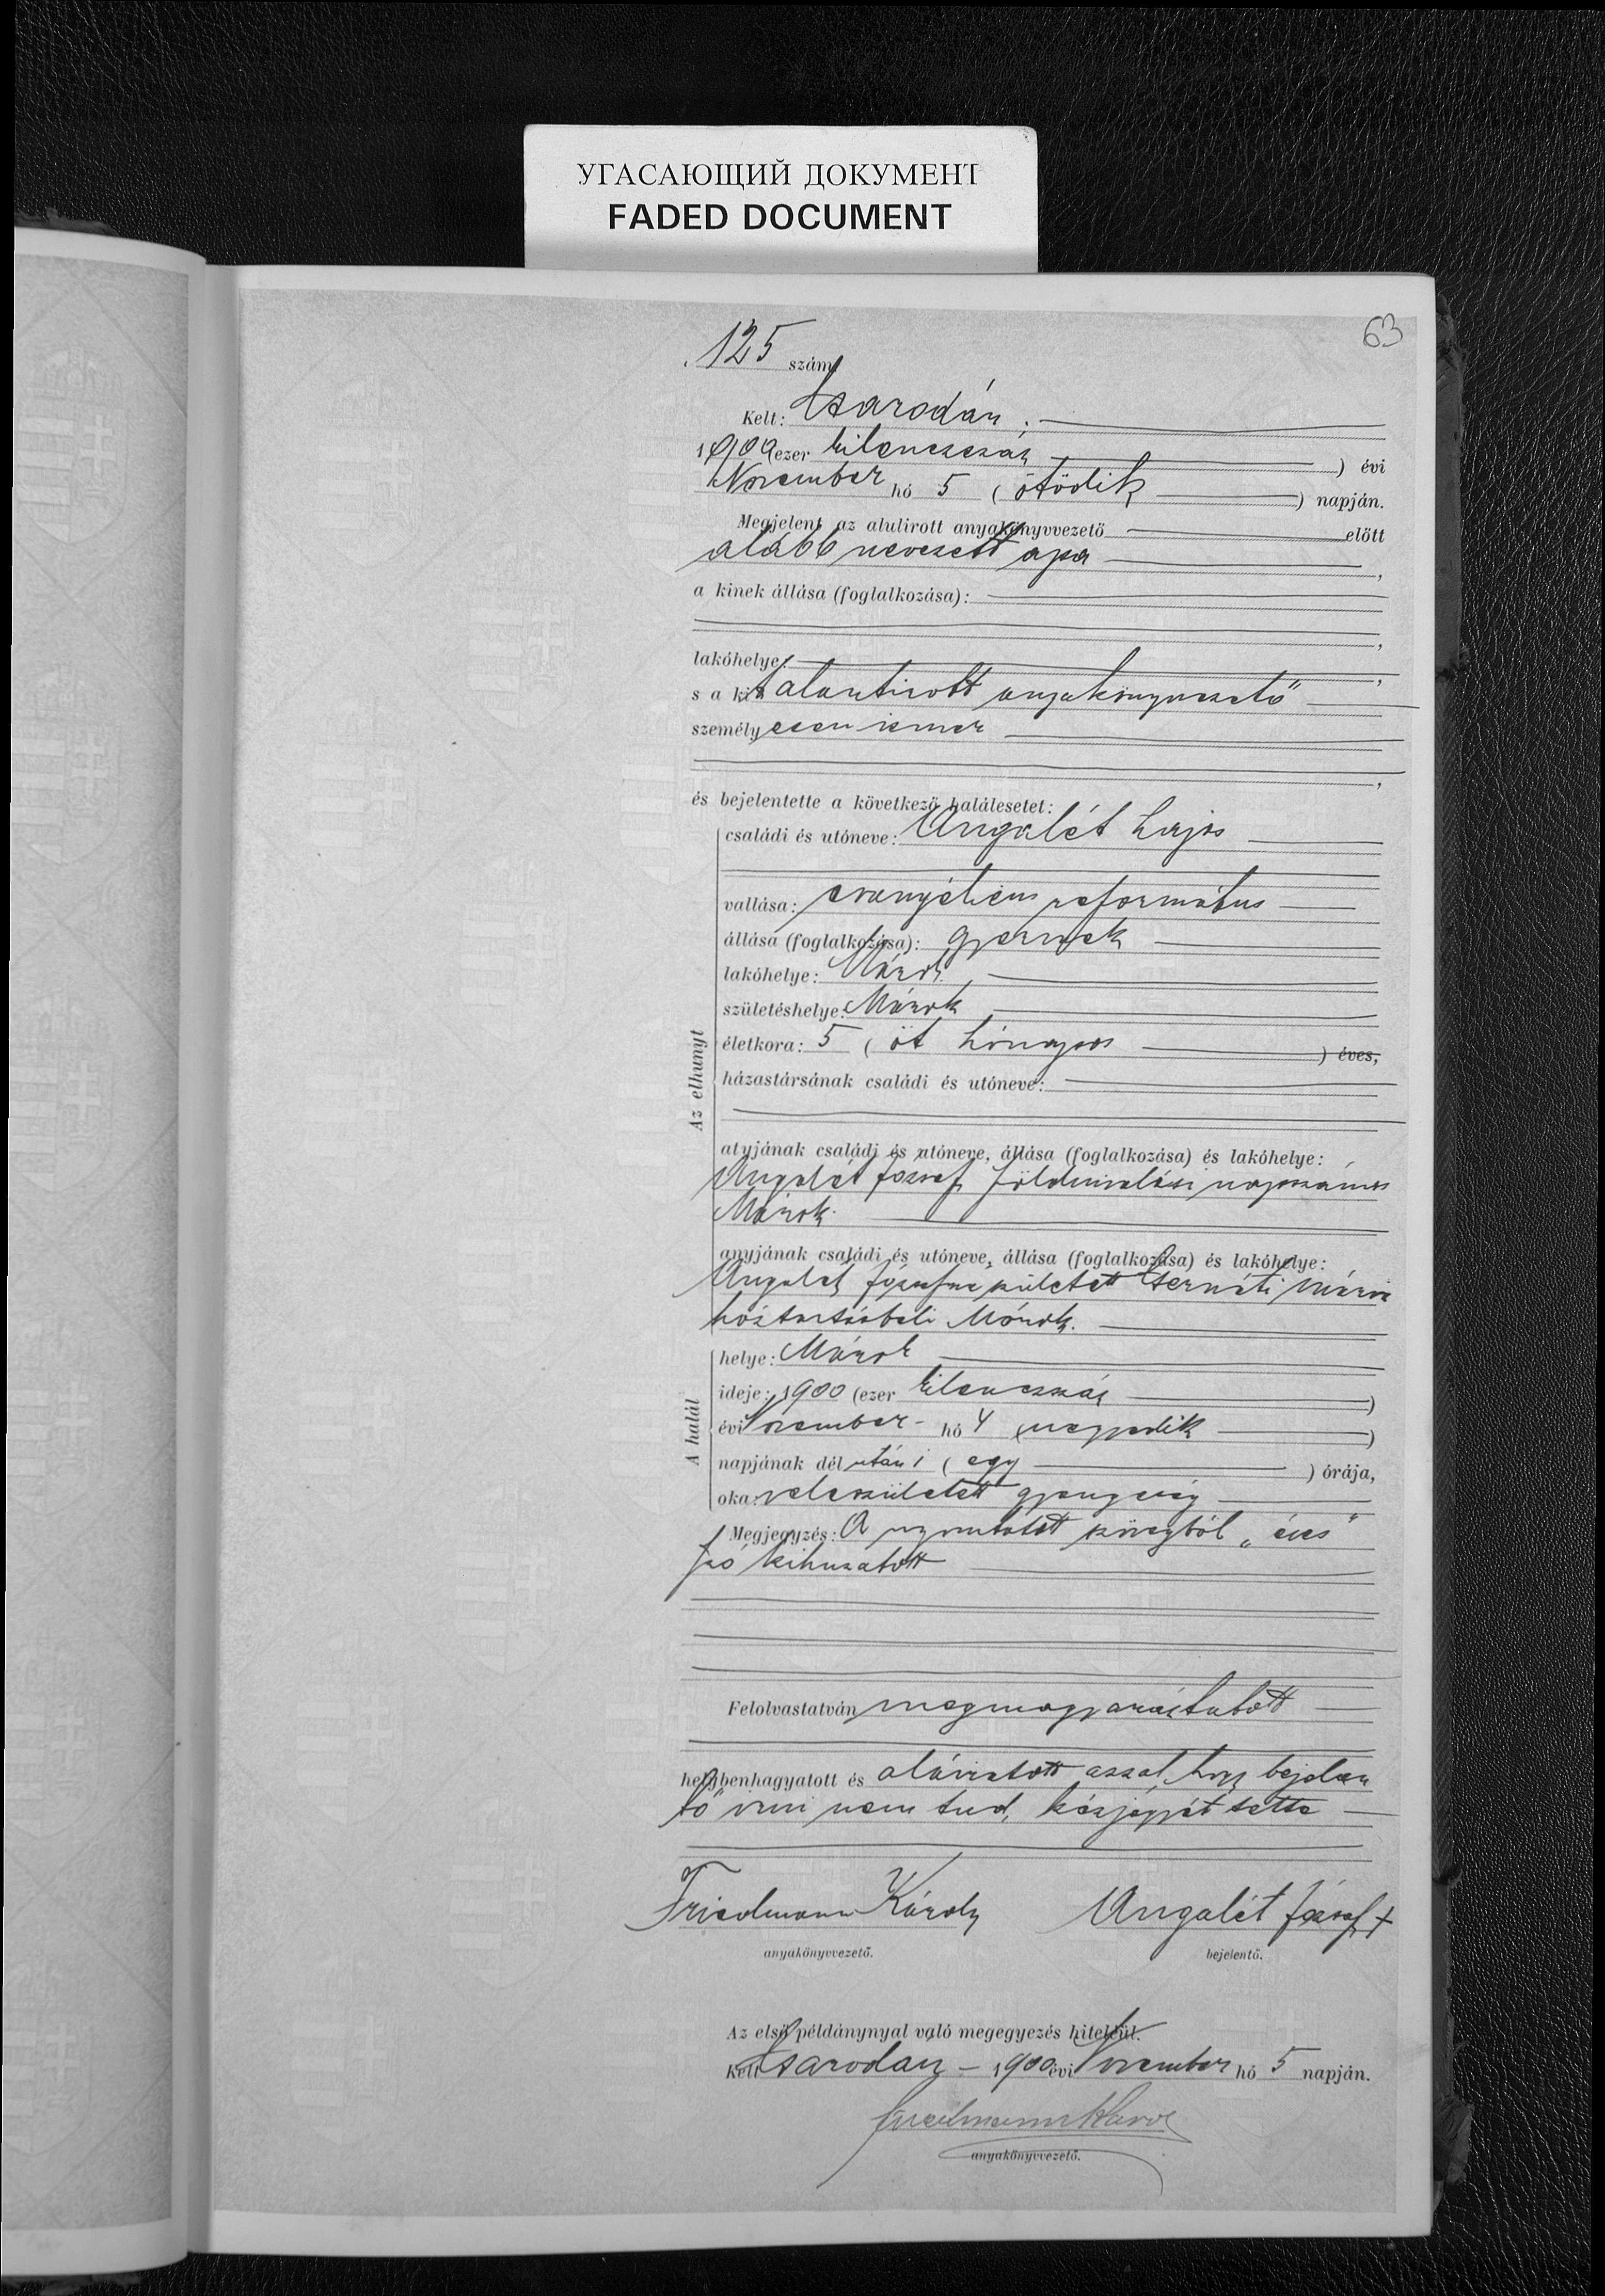 УГАСАЮЩИЙ ДОКУМЕНТ
FADED DOCUMENT
63
125 szám
Kelt: Csarodán,
1900 (ezer kilenczszáz ) évi
November hó 5 (ötödik ) napján.
Megjelent az alulirott anyakönyvvezető előtt
alább nevezett apa ,
a kinek állása (foglalkozása):
,
lakóhelye: ,
s a kit alantirott anyakönyvvezető
személyesen ismer
,
és bejelentette a következő halálesetet:
Az elhunyt
családi és utóneve: Angalét Lajos
vallása: evangélicus református
állása (foglalkozása): gyermek
lakóhelye: Márok
születéshelye: Márok
életkora: 5 (öt hónapos ) éves,
házastársának családi és utóneve:
atyjának családi és utóneve, állása (foglalkozása) és lakóhelye:
Angalét József földmivelési napszámos
Márok
anyjának családi és utóneve, állása (foglalkozása) és lakóhelye:
Angalét Józsefne született Csernáti Mária
háztartásbeli Márok.
A halál
helye: Márok
ideje: 1900 (ezer kilenczszáz )
évi November hó 4 (negyedik )
napjának dél után 1 (egy ) órája,
oka: veleszületett gyengeség
Megjegyzés: A nyomtatott szövegből „éves"
szó kihuzatott
Felolvastatván megmagyaráztatott
helybenhagyatott és aláiratott azzal, hogy bejelen
tő irni nem tud, kézjegyét tette
Friedmann Károly Angalét József +
anyakönyvvezető. bejelentő.
Az első példánynyal való megegyezés hiteléül.
Kelt Csarodán 1900 évi November hó 5 napján.
Friedmann Károly
anyakönyvvezető.